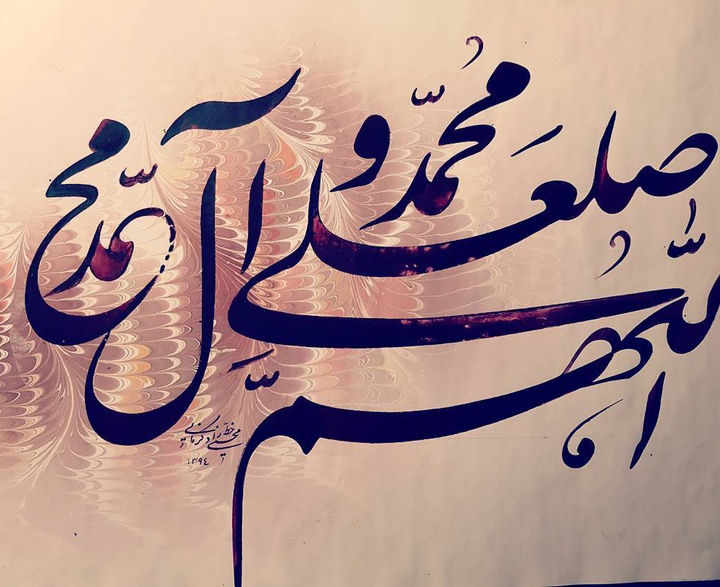 اللّهمّ صل علی محمّد و آل محمّد
۱۳۹۴